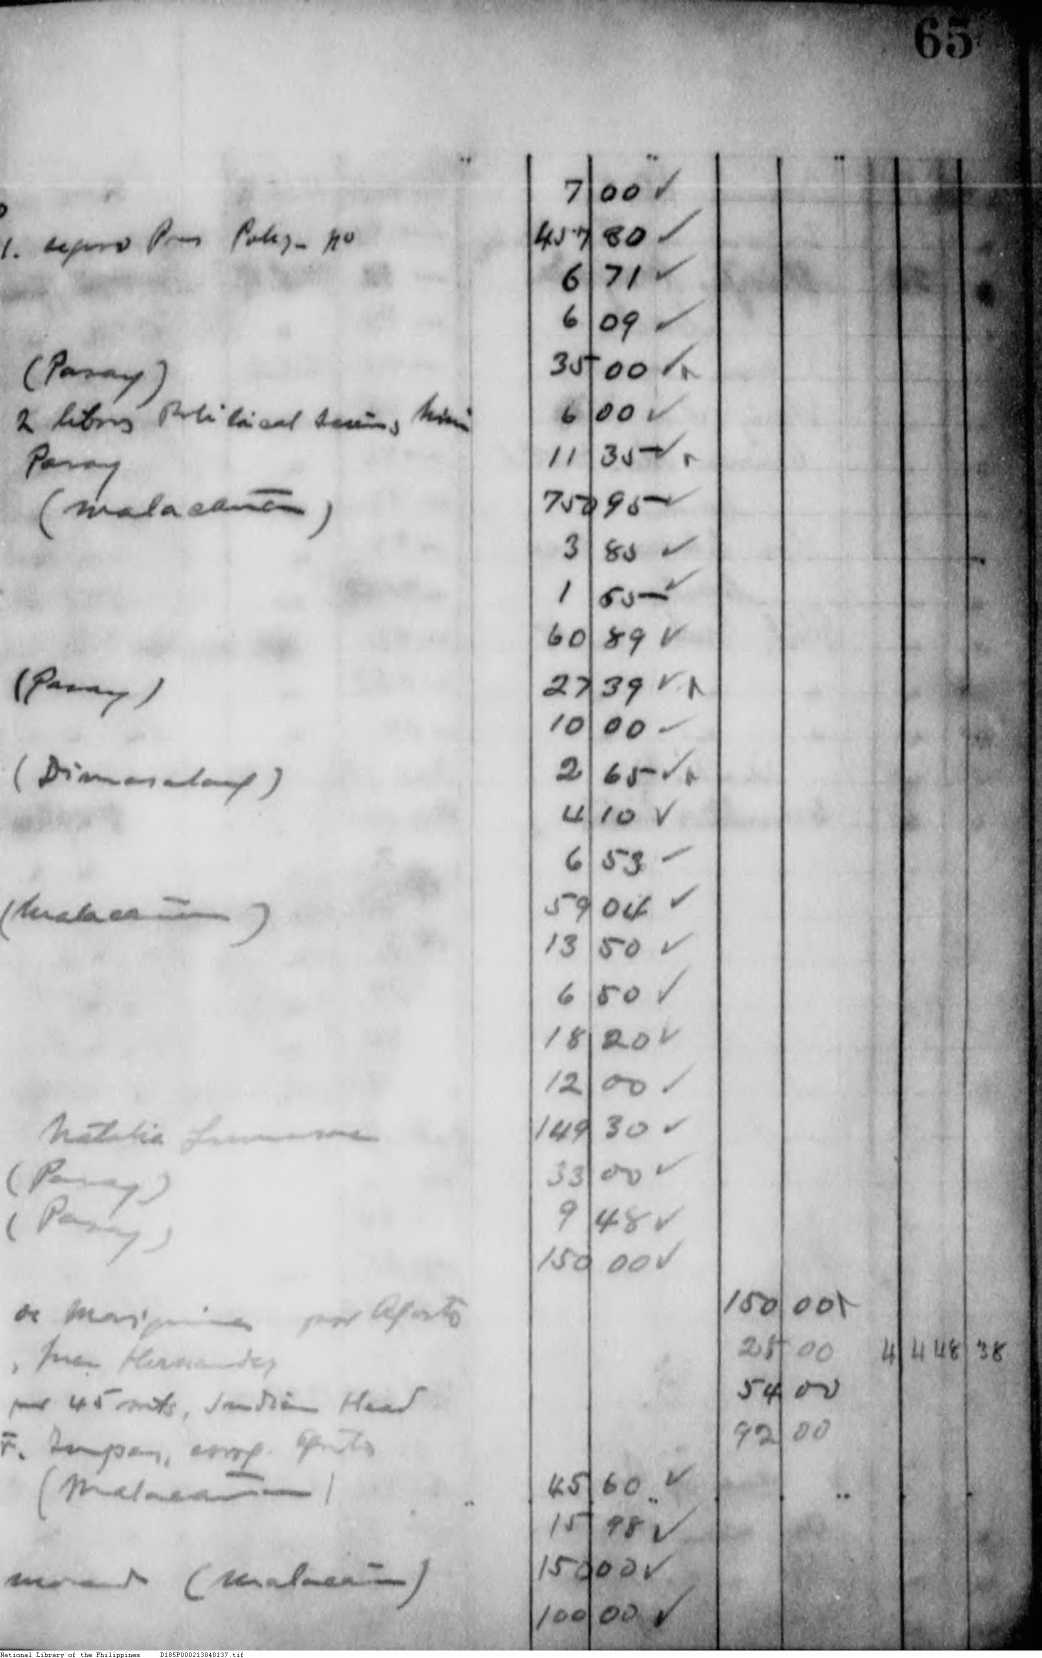 65
7 00 ✓
1. seguro Pres Poliz- no 457 80 ✓
6 71 ✓
6 09 ✓
(Pasay) 35 00 ✓
2 libros Political 6 00 ✓
Pasay 11 35 ✓
(Malacañan) 750 95 ✓
3 85 ✓
1 65 ✓
60 89 ✓
(Pasay) 27 39 ✓
10 00 ✓
(Dimasalang) 2 65 ✓
4 10 ✓
6 53 ✓
(Malacañan) 59 04 ✓
13 50 ✓
6 50 ✓
18 20 ✓
12 00 ✓
Natalia 149 30 ✓
(Pasay) 33 00 ✓
(Pasay) 9 48 ✓
150 00 ✓
de Mariquina por Agosto 150 00
, Juan Hernandez 25 00 4 448 38
por 45 , Indian Head 54 00
F. 92 00
(Malacañan) 45 60 ✓
15 98 ✓
(Malacañan) 150 00 ✓
100 00 ✓
National Library of the Philippines D185P000213040137.tif